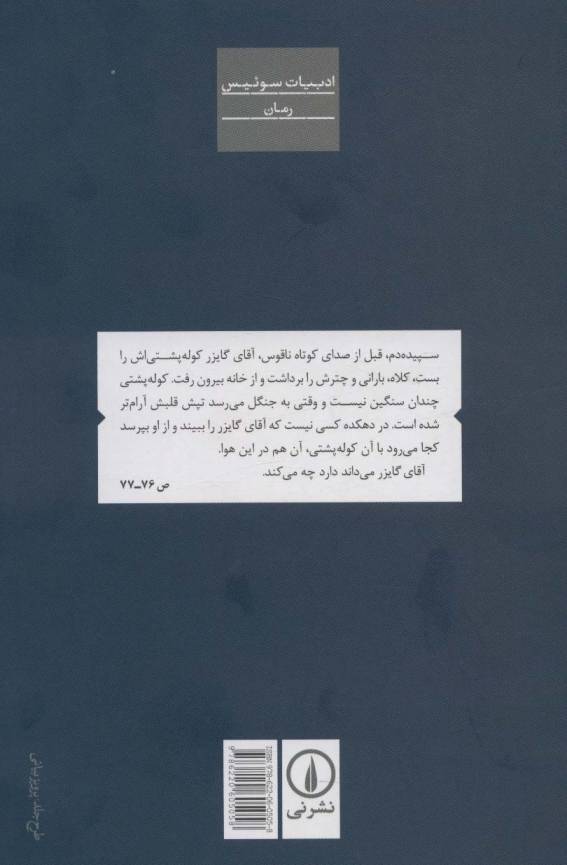 ادبیات سوئیس
رمان
سپیده‌دم، قبل از صدای کوتاه ناقوس، آقای گایزر کوله‌پشتی‌اش را
بست، کلاه، بارانی و چترش را برداشت و از خانه بیرون رفت. کوله‌پشتی
چندان سنگین نیست و وقتی به جنگل می‌رسد تپش قلبش آرام‌تر
شده است. در دهکده کسی نیست که آقای گایزر را ببیند و از او بپرسد
کجا می‌رود با آن کوله‌پشتی، آن هم در این هوا.
آقای گایزر می‌داند دارد چه می‌کند.
ص ۷۶ـ۷۷
ISBN 978-622-06-0505-8
9786220605058
نشرنی
طرح جلد: پرویز بیانی